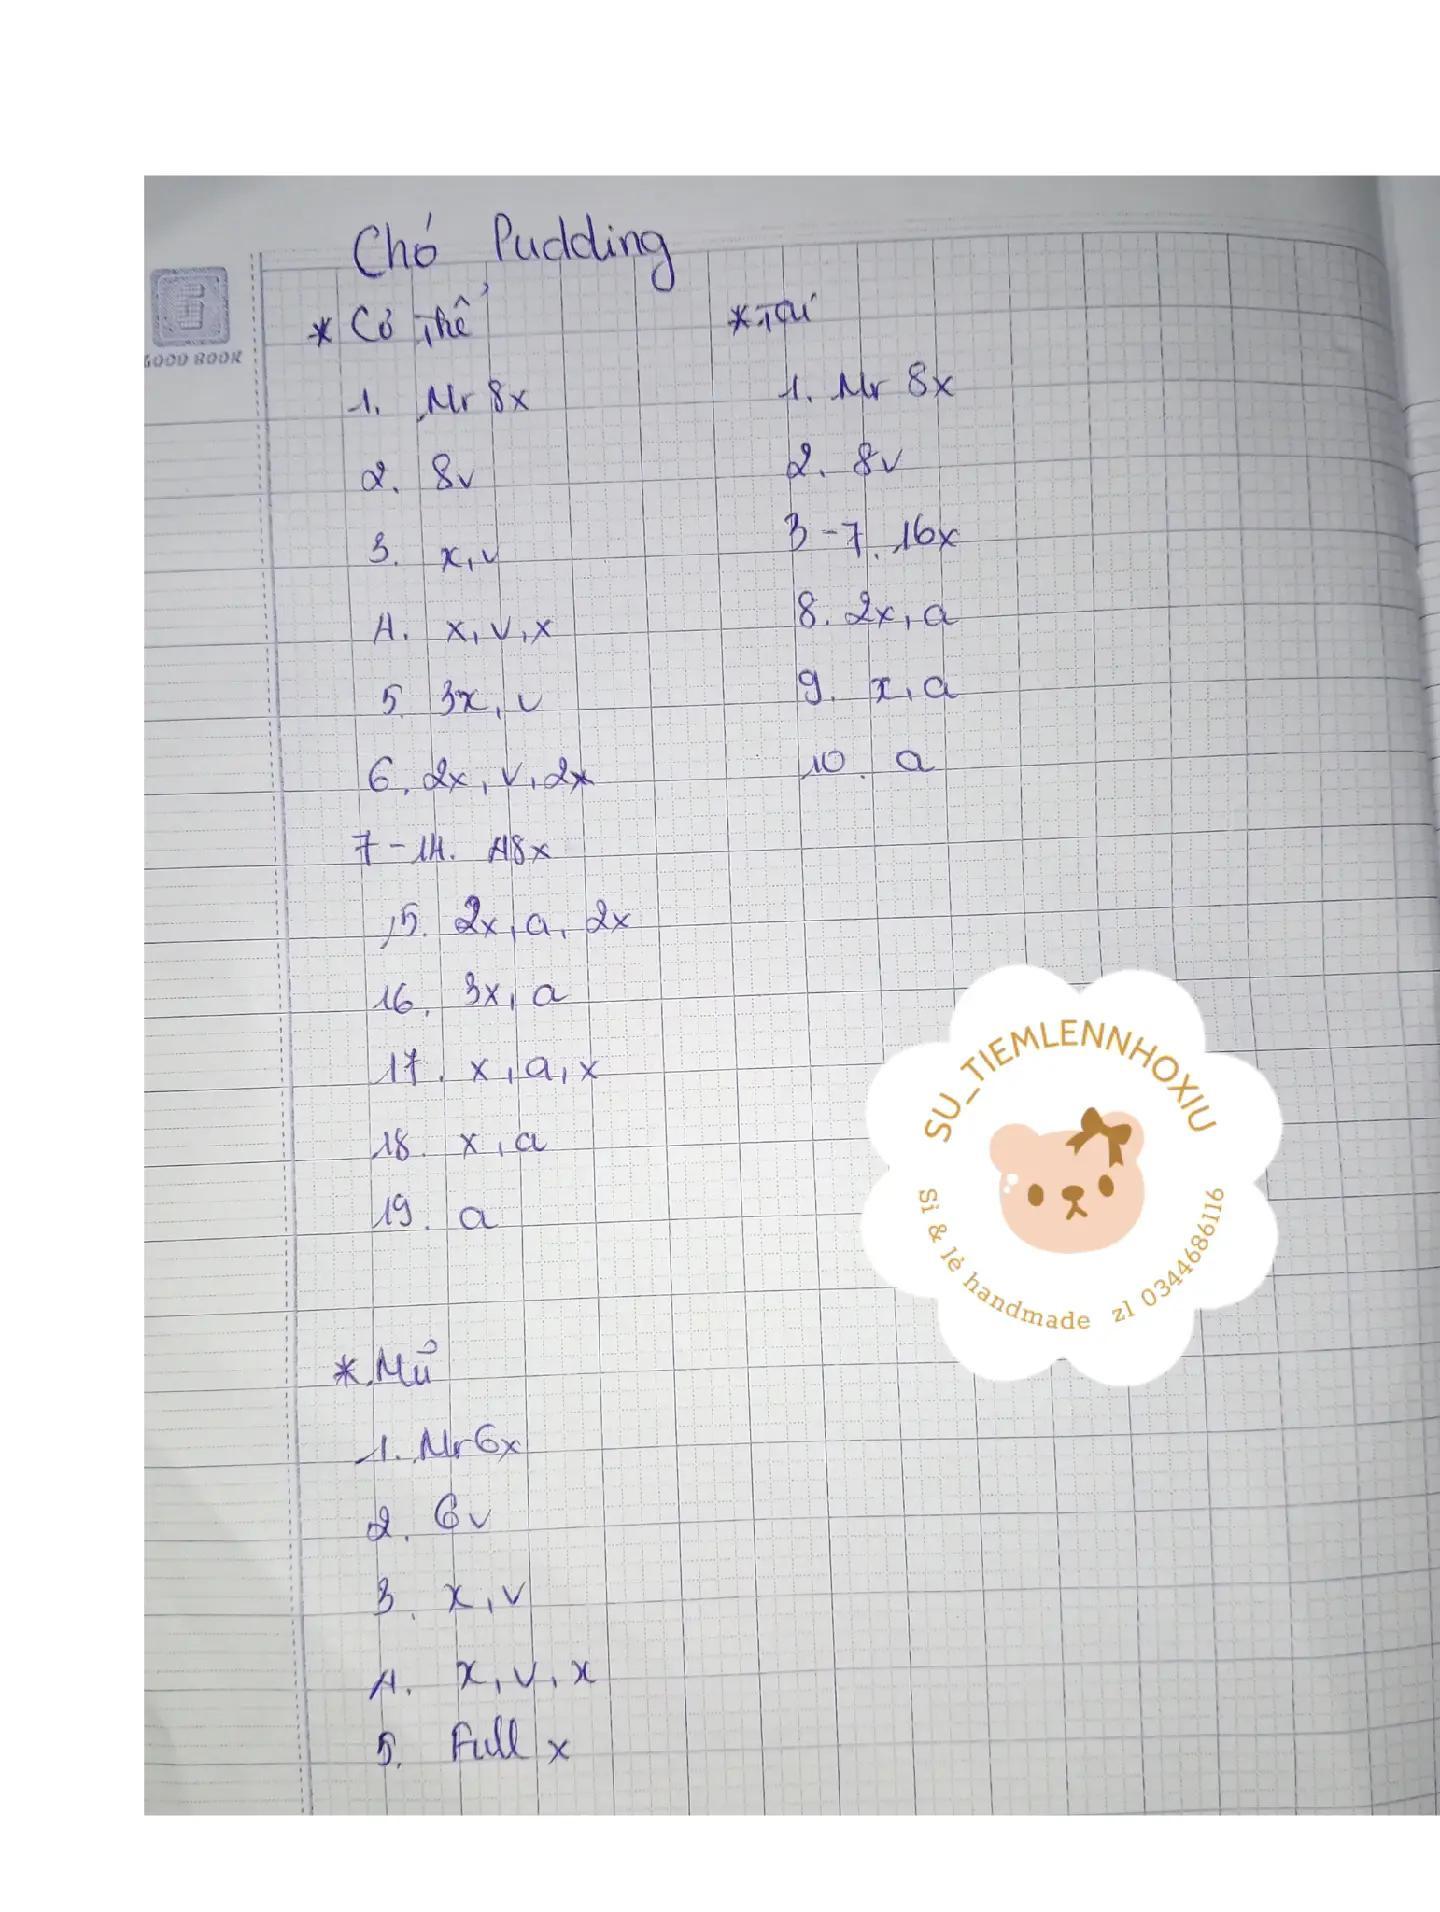 Chó Pudding
* Cơ Thể
1. Mr 8x
2. 8v
3. x, v
4. x, v, x
5 3x, v
6. 2x, v, 2x
7-14. 48x
15. 2x, a, 2x
16. 3x, a
17. x, a, x
18. x, a
19. a
* Mũ
1. Mr 6x
2. 6v
3. x, v
4. x, v, x
5. Full x
* Tai
1. Mr 8x
2. 8v
3-7. 16x
8. 2x, a
9. x, a
10. a
GOOD BOOK
SU_TIEMLENNHOXIU
Sỉ & lẻ handmade zl 0344686116